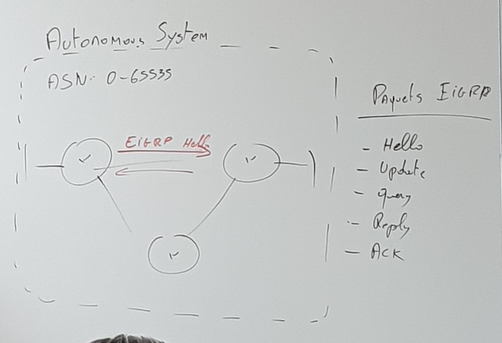 Autonomous System
ASN: 0-65535
EIGRP Hello
Paquets EIGRP
- Hello
- Update
- Query
- Reply
- ACK